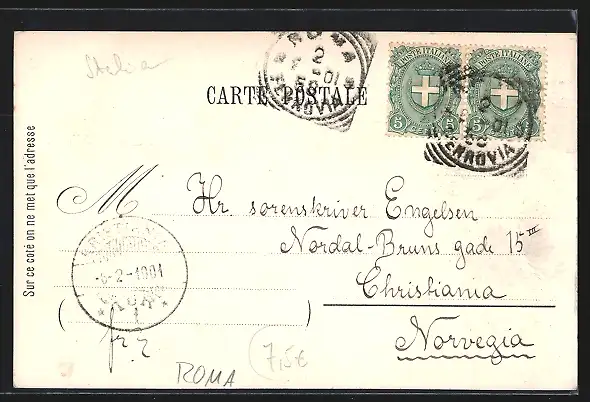 Italia
ROMA
2
01
FERROVIA
POSTE ITALIANE
POSTE ITALIANE
5 5
5
FERROVIA
CARTE POSTALE
Sur ce coté on ne met que l'adresse
M Hr. sorenskriver Engelsen
Nordal-Bruns gade 15 III
Christiania
Norvegia
-2-1901
ROMA
7,5€